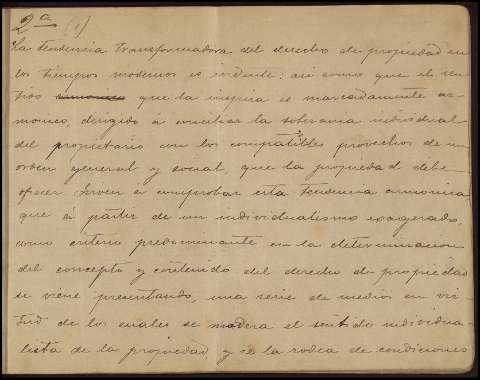 2ª (1)
La tendencia transformadora del derecho de propiedad en
los tiempos modernos es evidente; asi como que el sen-
tido armonico que la inspira es marcadamente ar-
monico, dirigido á conciliar la soberania individual
del propietario con los compatibles provechos de un
orden general y social, que la propiedad debe
ofrecer. Sirven á comprobar esta tendencia armonica,
que á partir de un individualismo exagerado,
como criterio predominante en la determinacion
del concepto y contenido del derecho de propiedad
se viene presentando, una serie de medios en vir-
tud de los cuales se modera el sentido individua-
lista de la propiedad, y se la rodea de condiciones